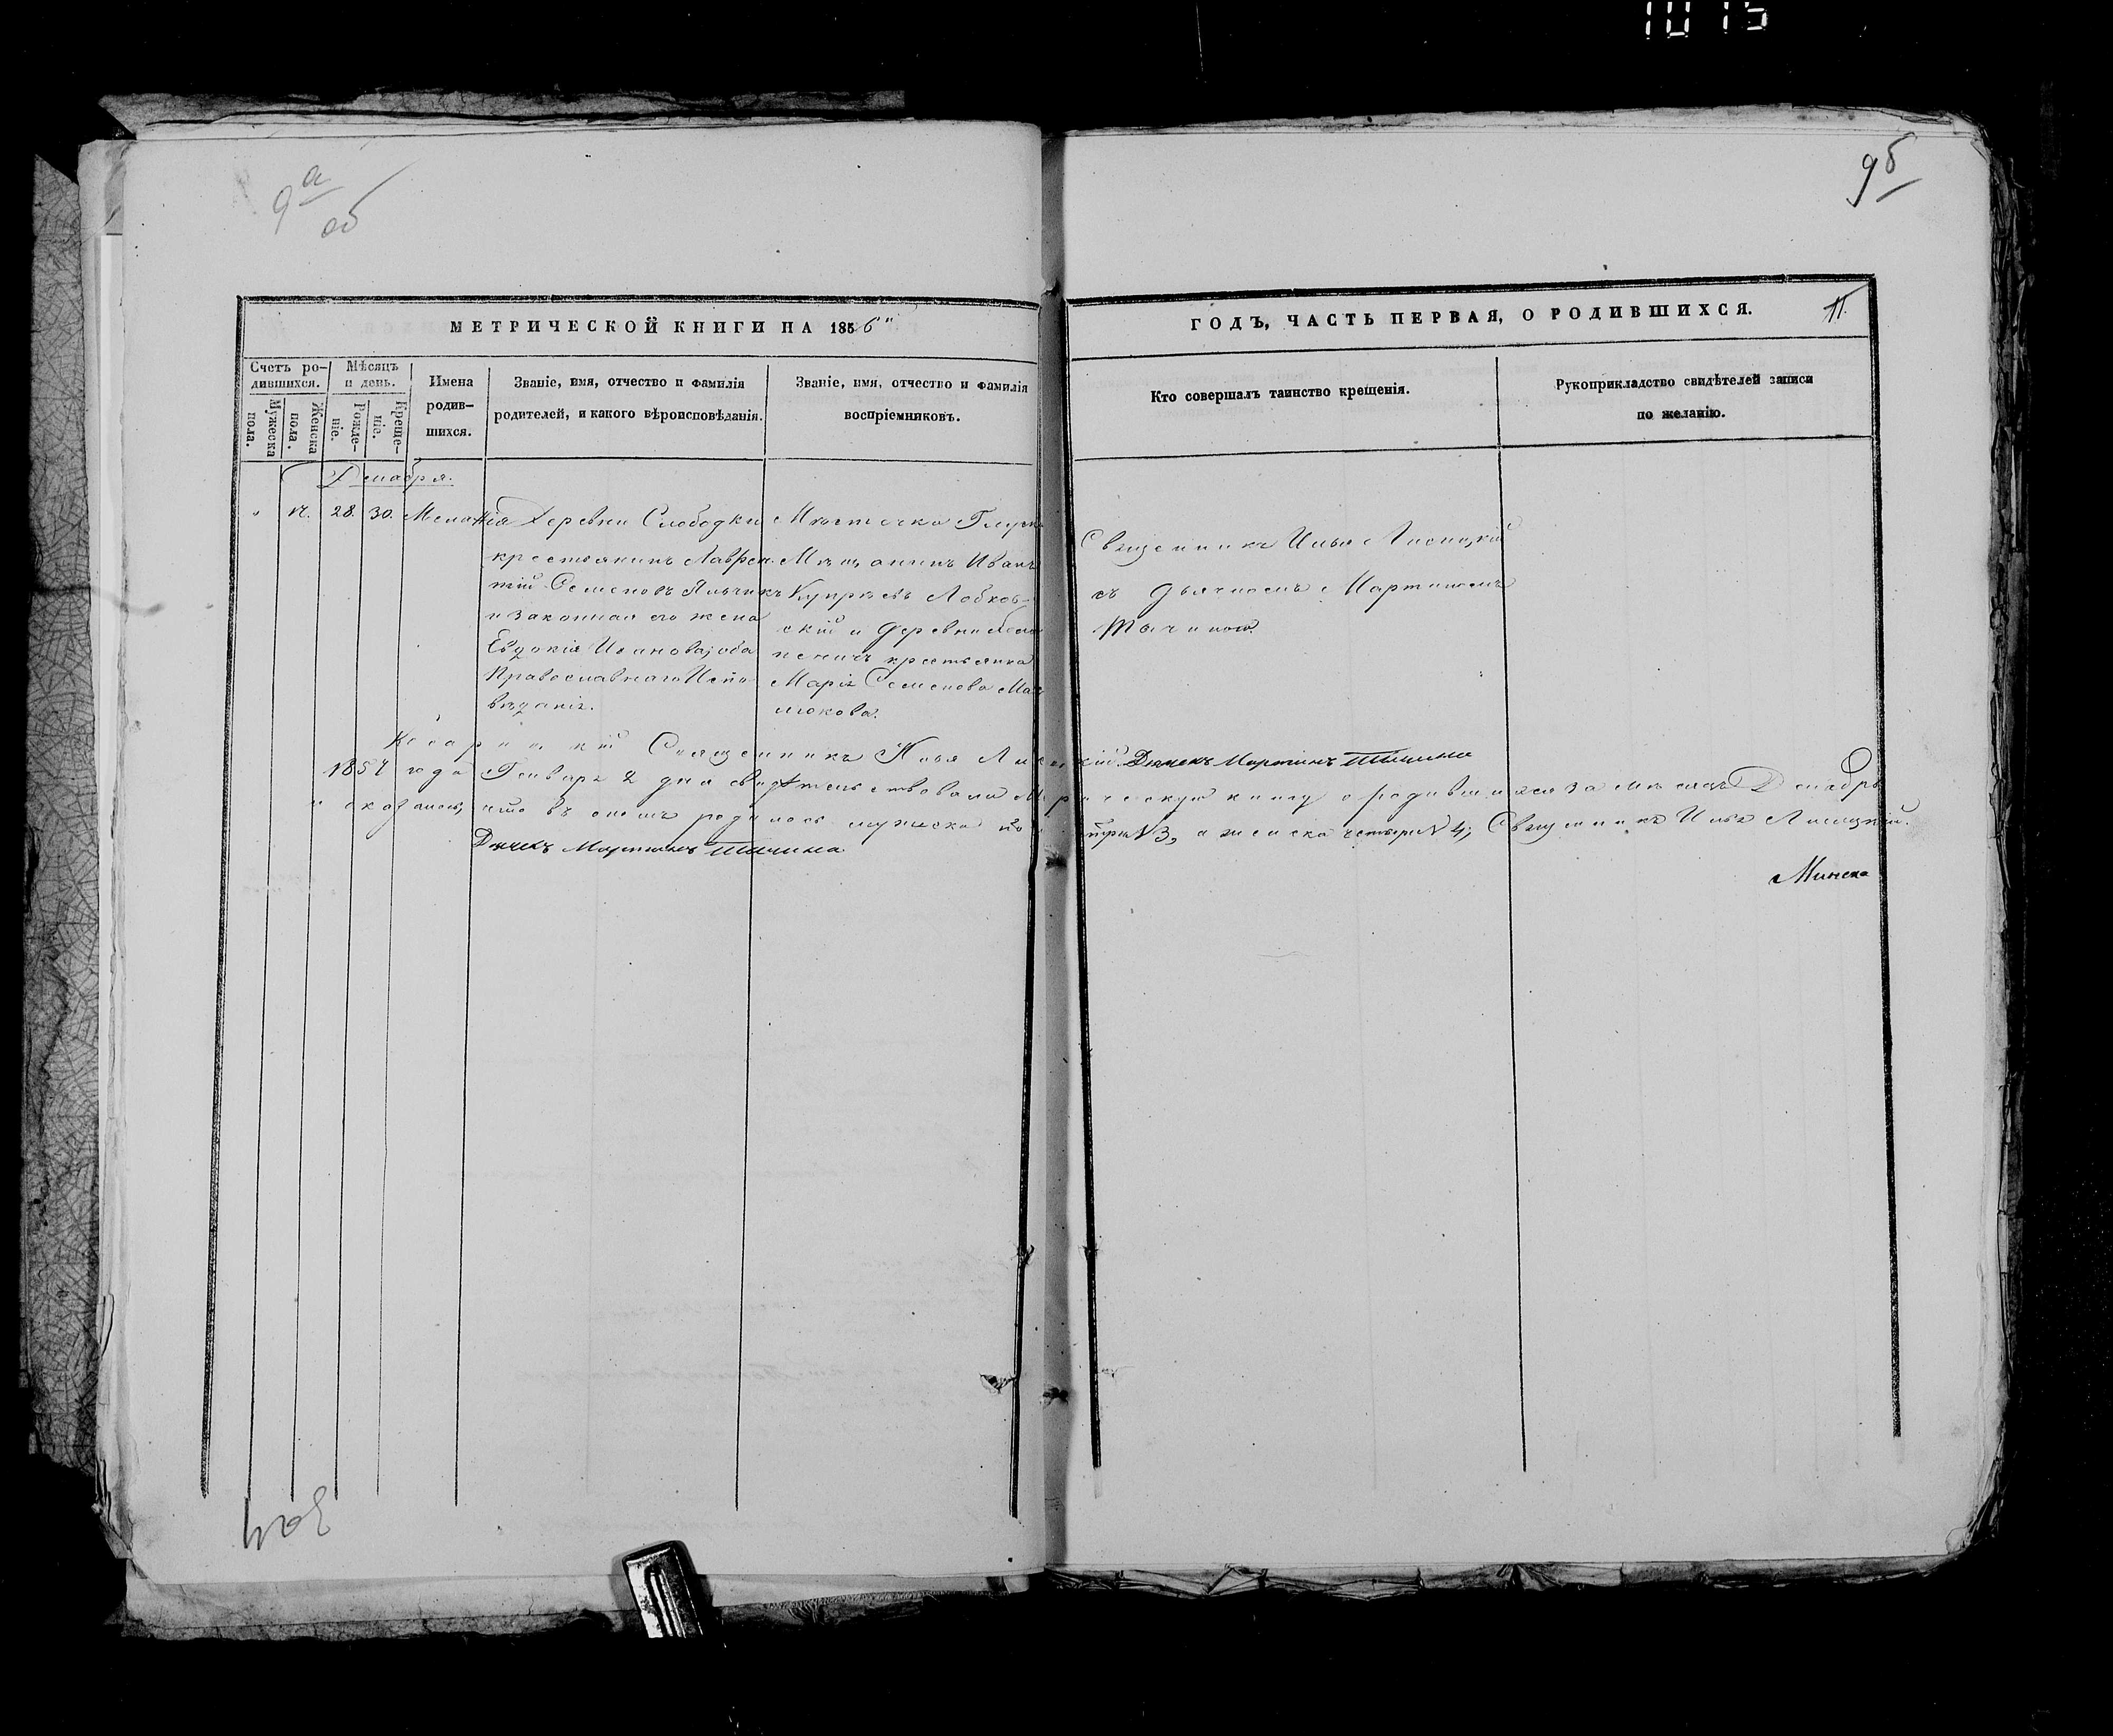 1015
9а
об
9б
МЕТРИЧЕСКОЙ КНИГИ НА 1856"
ГОДЪ, ЧАСТЬ ПЕРВАЯ, О РОДИВШИХСЯ.
11.
Счетъ ро-
дившихся.
Мужеска
пола.
Женска
пола.
Мѣсяцъ
и день.
Рожде-
ніе.
Креще-
ніе.
Имена
родив-
шихся.
Званіе, имя, отчество и фамилія
родителей, и какого вѣроисповѣданія.
Званіе, имя, отчество и фамилія
воспріемниковъ.
Кто совершалъ таинство крещенія.
Рукоприкладство свидѣтелей записи
по желанію.
Декабря.
28. 30. Меланія
Деревни Слободки
крестьянинъ Лаврен-
тій Семеновъ
и законная его жена
Евдокія Иванова, оба
Православнаго Испо-
вѣданія.
Мѣстечка
Мѣщанинъ Иванъ
Лобков-
скій и деревни
крестьянка
Марія Семенова
Священникъ Илья Лисицкій
съ дьячкомъ Мартиномъ
Тычиною.
Священникъ Илья
Дьячекъ Мартинъ Тычина
1857 года Генваря 2 дня свидѣтельствовали
книгу о родившихся за мѣсяцъ Декабрь
и оказалось, что въ ономъ родилось мужеска
три N 3, а женска четыре N 4; Священникъ Илья Лисицкій.
Дьячекъ Мартинъ Тычина
Минска